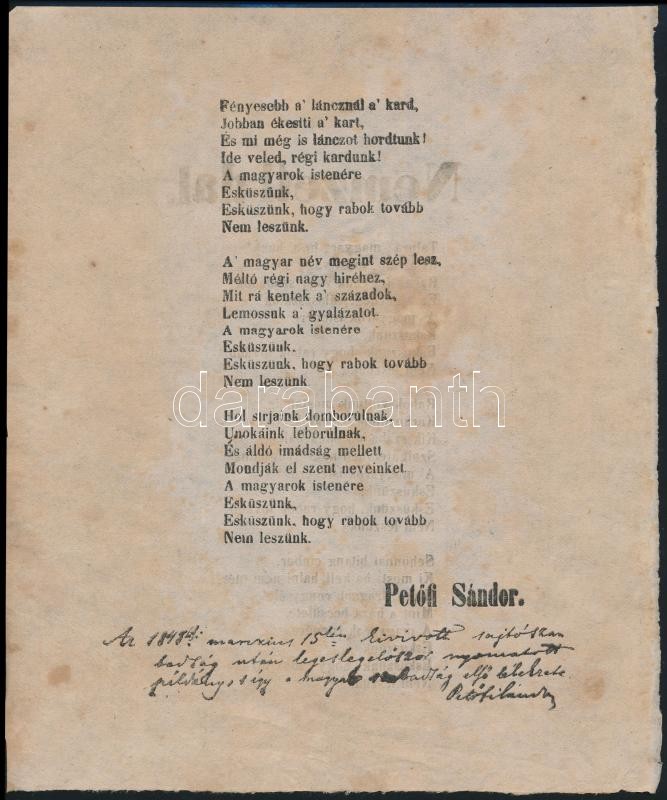 Fényesebb a' láncznál a' kard,
Jobban ékesíti a' kart,
És mi még is lánczot hordtunk!
Ide veled, régi kardunk!
A magyarok istenére
Esküszünk,
Esküszünk, hogy rabok tovább
Nem leszünk.
A' magyar név megint szép lesz,
Méltó régi nagy hiréhez,
Mit rá kentek a' századok,
Lemossuk a' gyalázatot.
A magyarok istenére
Esküszünk,
Esküszünk, hogy rabok tovább
Nem leszünk
Hol sirjaink domborulnak,
Unokáink leborulnak,
És áldó imádság mellett
Mondják el szent neveinket.
A magyarok istenére
Esküszünk,
Esküszünk, hogy rabok tovább
Nem leszünk.
Petőfi Sándor.
Az 1848diki marczius 15kén kivívott sajtószabadság
után legeslegelőször nyomatott
példány, s így a magyar szabadság első lélekzete.
Petőfi Sándor
darabanth